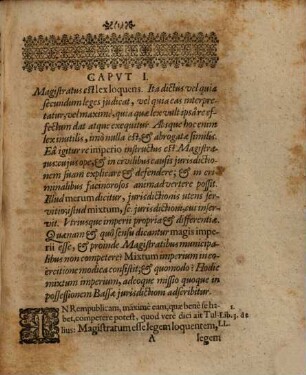 CAPVT I.
Magistratus est lex loquens. Ita dictus vel quia
secundum leges judicat, vel quia eas interpre-
tatur, vel maximè, quia quæ lex vult ipsâ re ef-
fectum dat atque exequitur. Absque hoc enim
lex inutilis, imò nulla est, & abrogatæ similis.
Ed igitur & imperio instructus est Magistra-
tus, cujus ope, & in civilibus causis jurisdictio-
nem suam explicare & defendere; & in cri-
minalibus facinorosos animadvertere possit.
Illud merum dicitur, jurisdictionis utens ser-
vitio: istud mixtum, sc. jurisdictioni, cui inser-
vit. Utriusque imperii propria & differentiæ.
Quænam & quô sensu dicantur magis imper-
ii esse, & proinde Magistratibus municipa-
libus non competere? Mixtum imperium in co-
ercitione modica consistit, & quomodo? Hodie
mixtum imperium, adeoque missio quoque in
possessionem Bassæ jurisdictioni adscribitur.
IN Rempublicam, maximè eam, quæ benè se ha-
bet, competere potest, quod verè dici ait Tul-
lius: Magistratum esse legem loquentem,
1.
Lib. 3. de
LL.
A
legem